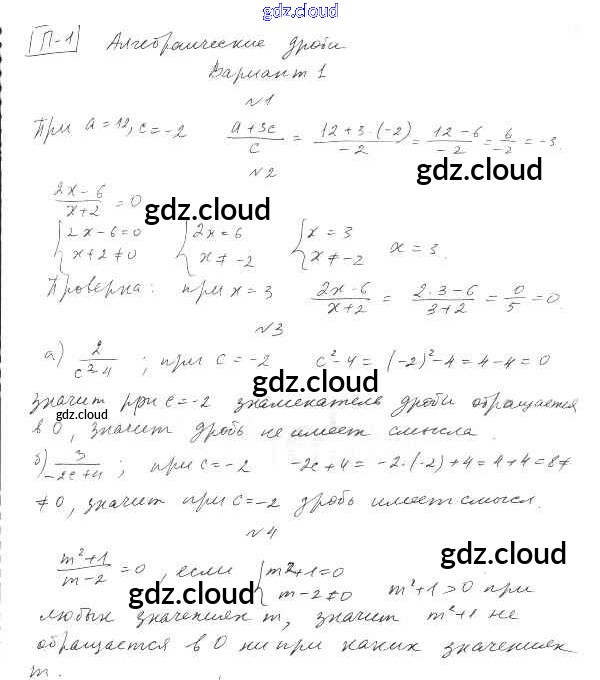 gdz.cloud
П-1 Алгебраические дроби
Вариант 1
№1
При a = 12, c = -2 (a+3c)/c = (12+3·(-2))/(-2) = (12-6)/(-2) = 6/(-2) = -3.
№2
(2x-6)/(x+2) = 0
{2x-6=0 {2x=6 {x=3
{x+2≠0 {x≠-2 {x≠-2 x=3.
gdz.cloud gdz.cloud
Проверка: при x=3 (2x-6)/(x+2) = (2·3-6)/(3+2) = 0/5 = 0.
№3
а) 2/(c²-4); при c=-2 c²-4=(-2)²-4=4-4=0
gdz.cloud
значит при c=-2 знаменатель дроби обращается
gdz.cloud
в 0, значит дробь не имеет смысла.
б) 3/(-2c+4); при c=-2 -2c+4=-2·(-2)+4=4+4=8≠
≠0, значит при c=-2 дробь имеет смысл.
№4
gdz.cloud
(m²+1)/(m-2) = 0, если {m²+1=0
{m-2≠0 m²+1>0 при
gdz.cloud gdz.cloud
любых значениях m, значит m²+1 не
обращается в 0 ни при каких значениях
m.